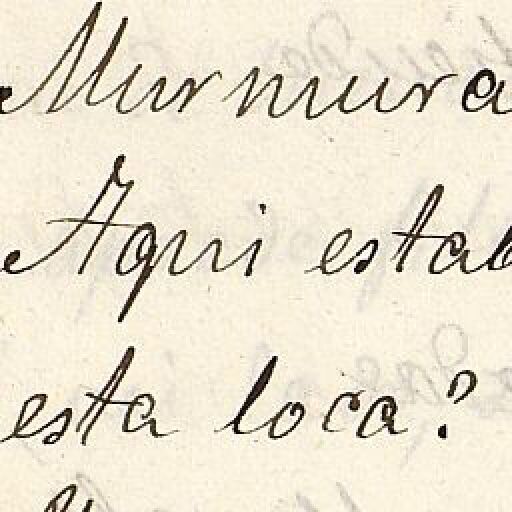 Murmura
Aqui estab
esta loca?